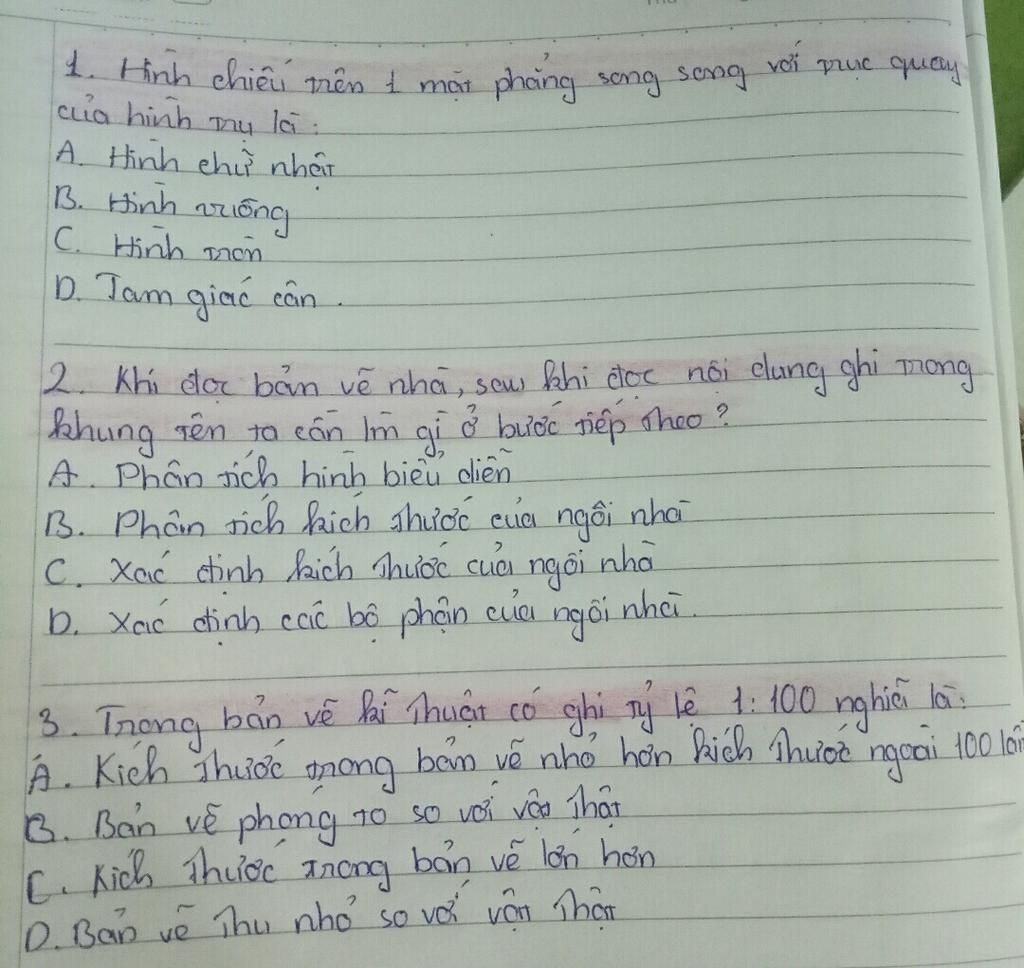 1. Hình chiếu trên 1 mặt phẳng song song với trục quay
của hình trụ là:
A. Hình chữ nhật
B. Hình vuông
C. Hình tròn
D. Tam giác cân.
2. Khi đọc bản vẽ nhà, sau khi đọc nội dung ghi trong
khung tên ta cần lm gì ở bước tiếp theo?
A. Phân tích hình biểu diễn
B. Phân tích kích thước của ngôi nhà
C. Xác định kích thước của ngôi nhà
D. Xác định các bộ phận của ngôi nhà.
3. Trong bản vẽ kĩ thuật có ghi tỷ lệ 1:100 nghiã là:
A. Kích thước trong bản vẽ nhỏ hơn kích thước ngoài 100 lần
B. Bản vẽ phóng to so với vật thật
C. Kích thước trong bản vẽ lớn hơn
D. Bản vẽ thu nhỏ so với vật thật